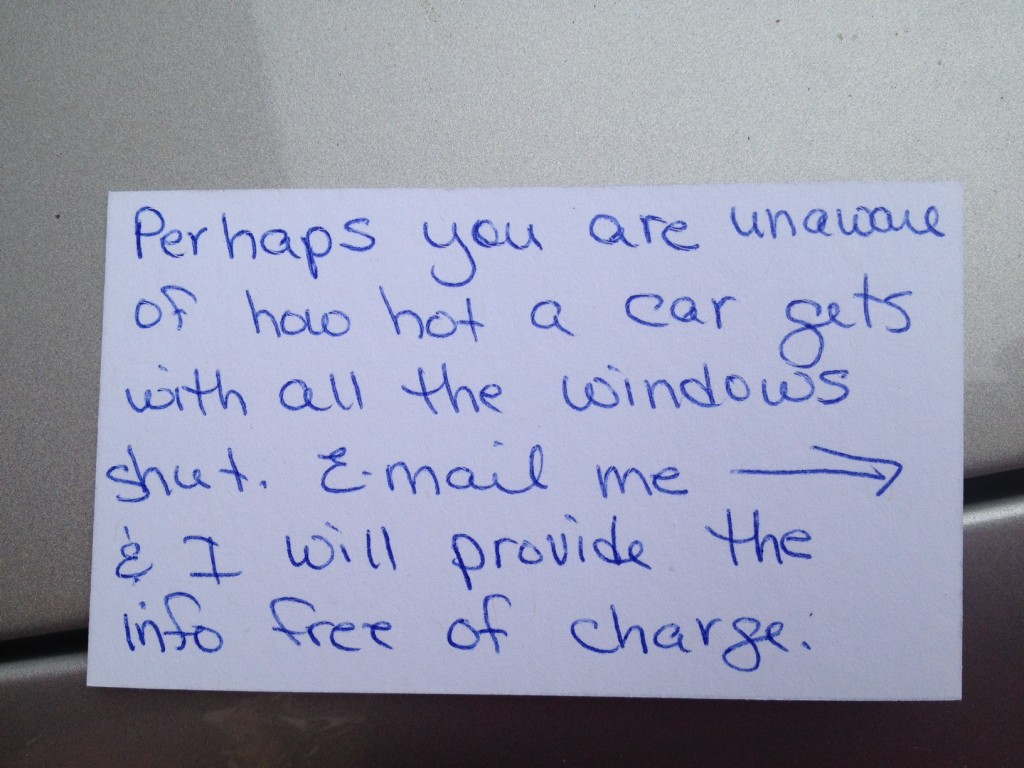 Perhaps you are unaware
of how hot a car gets
with all the windows
shut. E-mail me →
& I will provide the
info free of charge.